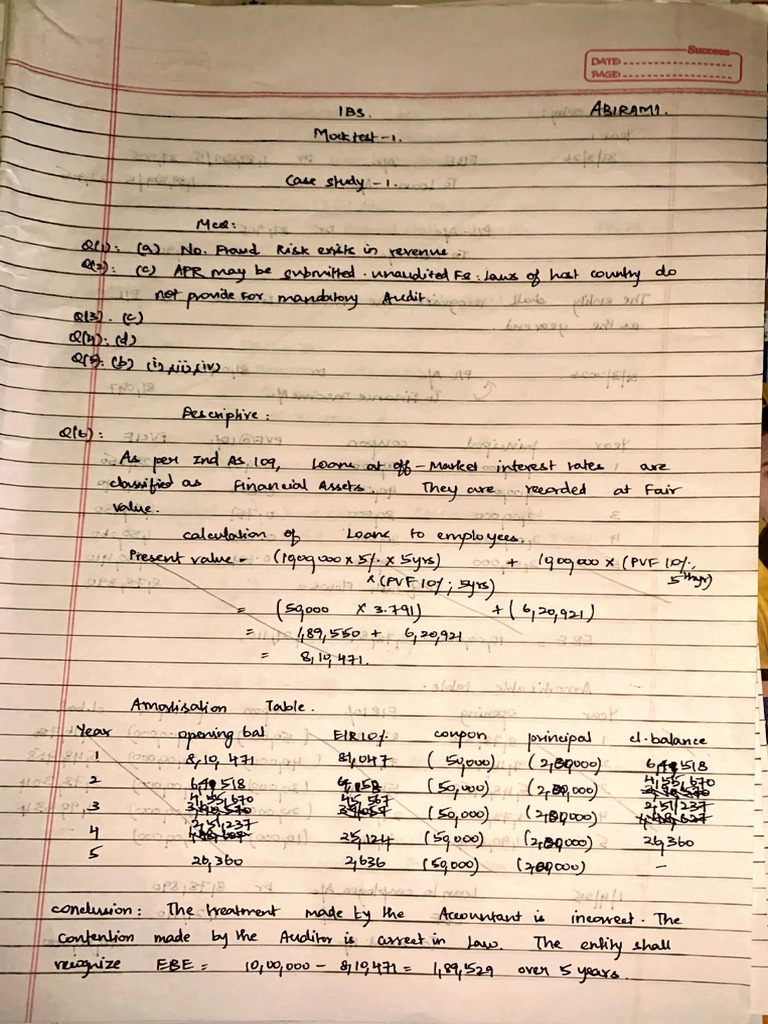 Success
DATE
PAGE
IBS. ABIRAMI.
Mock test - 1.
Case study - 1.
MCQ:
Q(1): (a) No. Fraud Risk exists in revenue.
Q(2): (c) APR may be submitted. unaudited FS: Laws of host country do
not provide for mandatory Audit.
Q(3). (c)
Q(4): (d)
Q(5): (b) (i, ii, iv)
Descriptive:
Q(6):
As per Ind AS 109, Loans at off-Market interest rates are
classified as Financial Assets. They are recorded at Fair
value.
calculation of Loans to employees.
Present value - (10,00,000 x 5% x 5yrs) + 10,00,000 x (PVF 10%,
x (PVF 10%; 5yrs) 5th yr)
= (50,000 x 3.791) + (6,20,921)
= 1,89,550 + 6,20,921
= 8,10,471.
Amortisation Table.
Year opening bal EIR 10% coupon principal cl. balance
1 8,10,471 81,047 (50,000) (2,00,000) 6,41,518
2 6,41,518 (50,000) (2,00,000) 4,55,670
3 4,55,670 45,567 (50,000) (2,00,000) 2,51,237
4 2,51,237 25,124 (50,000) (2,00,000) 26,360
5 26,360 2,636 (50,000) (2,00,000) -
conclusion: The treatment made by the Accountant is incorrect. The
contention made by the Auditor is correct in Law. The entity shall
recognize EBE = 10,00,000 - 8,10,471 = 1,89,529 over 5 years.